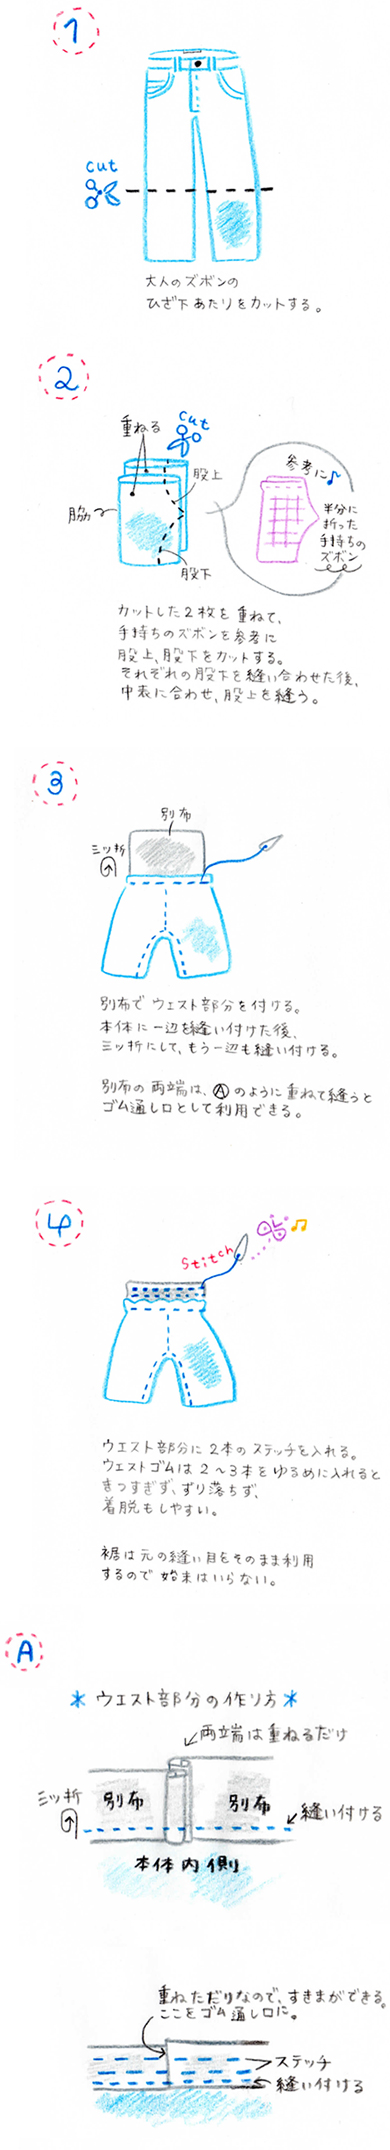 1
cut
大人のズボンの
ひざ下あたりをカットする。
2
重ねる
cut
股上
脇
股下
参考に♪
半分に
折った
手持ちの
ズボン
カットした2枚を重ねて、
手持ちのズボンを参考に
股上、股下をカットする。
それぞれの股下を縫い合わせた後、
中表に合わせ、股上を縫う。
3
別布
三ッ折
別布でウェスト部分を付ける。
本体に一辺を縫い付けた後、
三ッ折にして、もう一辺も縫い付ける。
別布の両端は、Ⓐのように重ねて縫うと
ゴム通し口として利用できる。
4
stitch
ウエスト部分に2本のステッチを入れる。
ウェストゴムは2〜3本をゆるめに入れると
きつすぎず、ずり落ちず、
着脱もしやすい。
裾は元の縫い目をそのまま利用
するので始末はいらない。
A
* ウエスト部分の作り方 *
両端は重ねるだけ
三ッ折
別布
別布
縫い付ける
本体内側
重ねただけなので、すきまができる。
ここをゴム通し口に。
ステッチ
縫い付ける